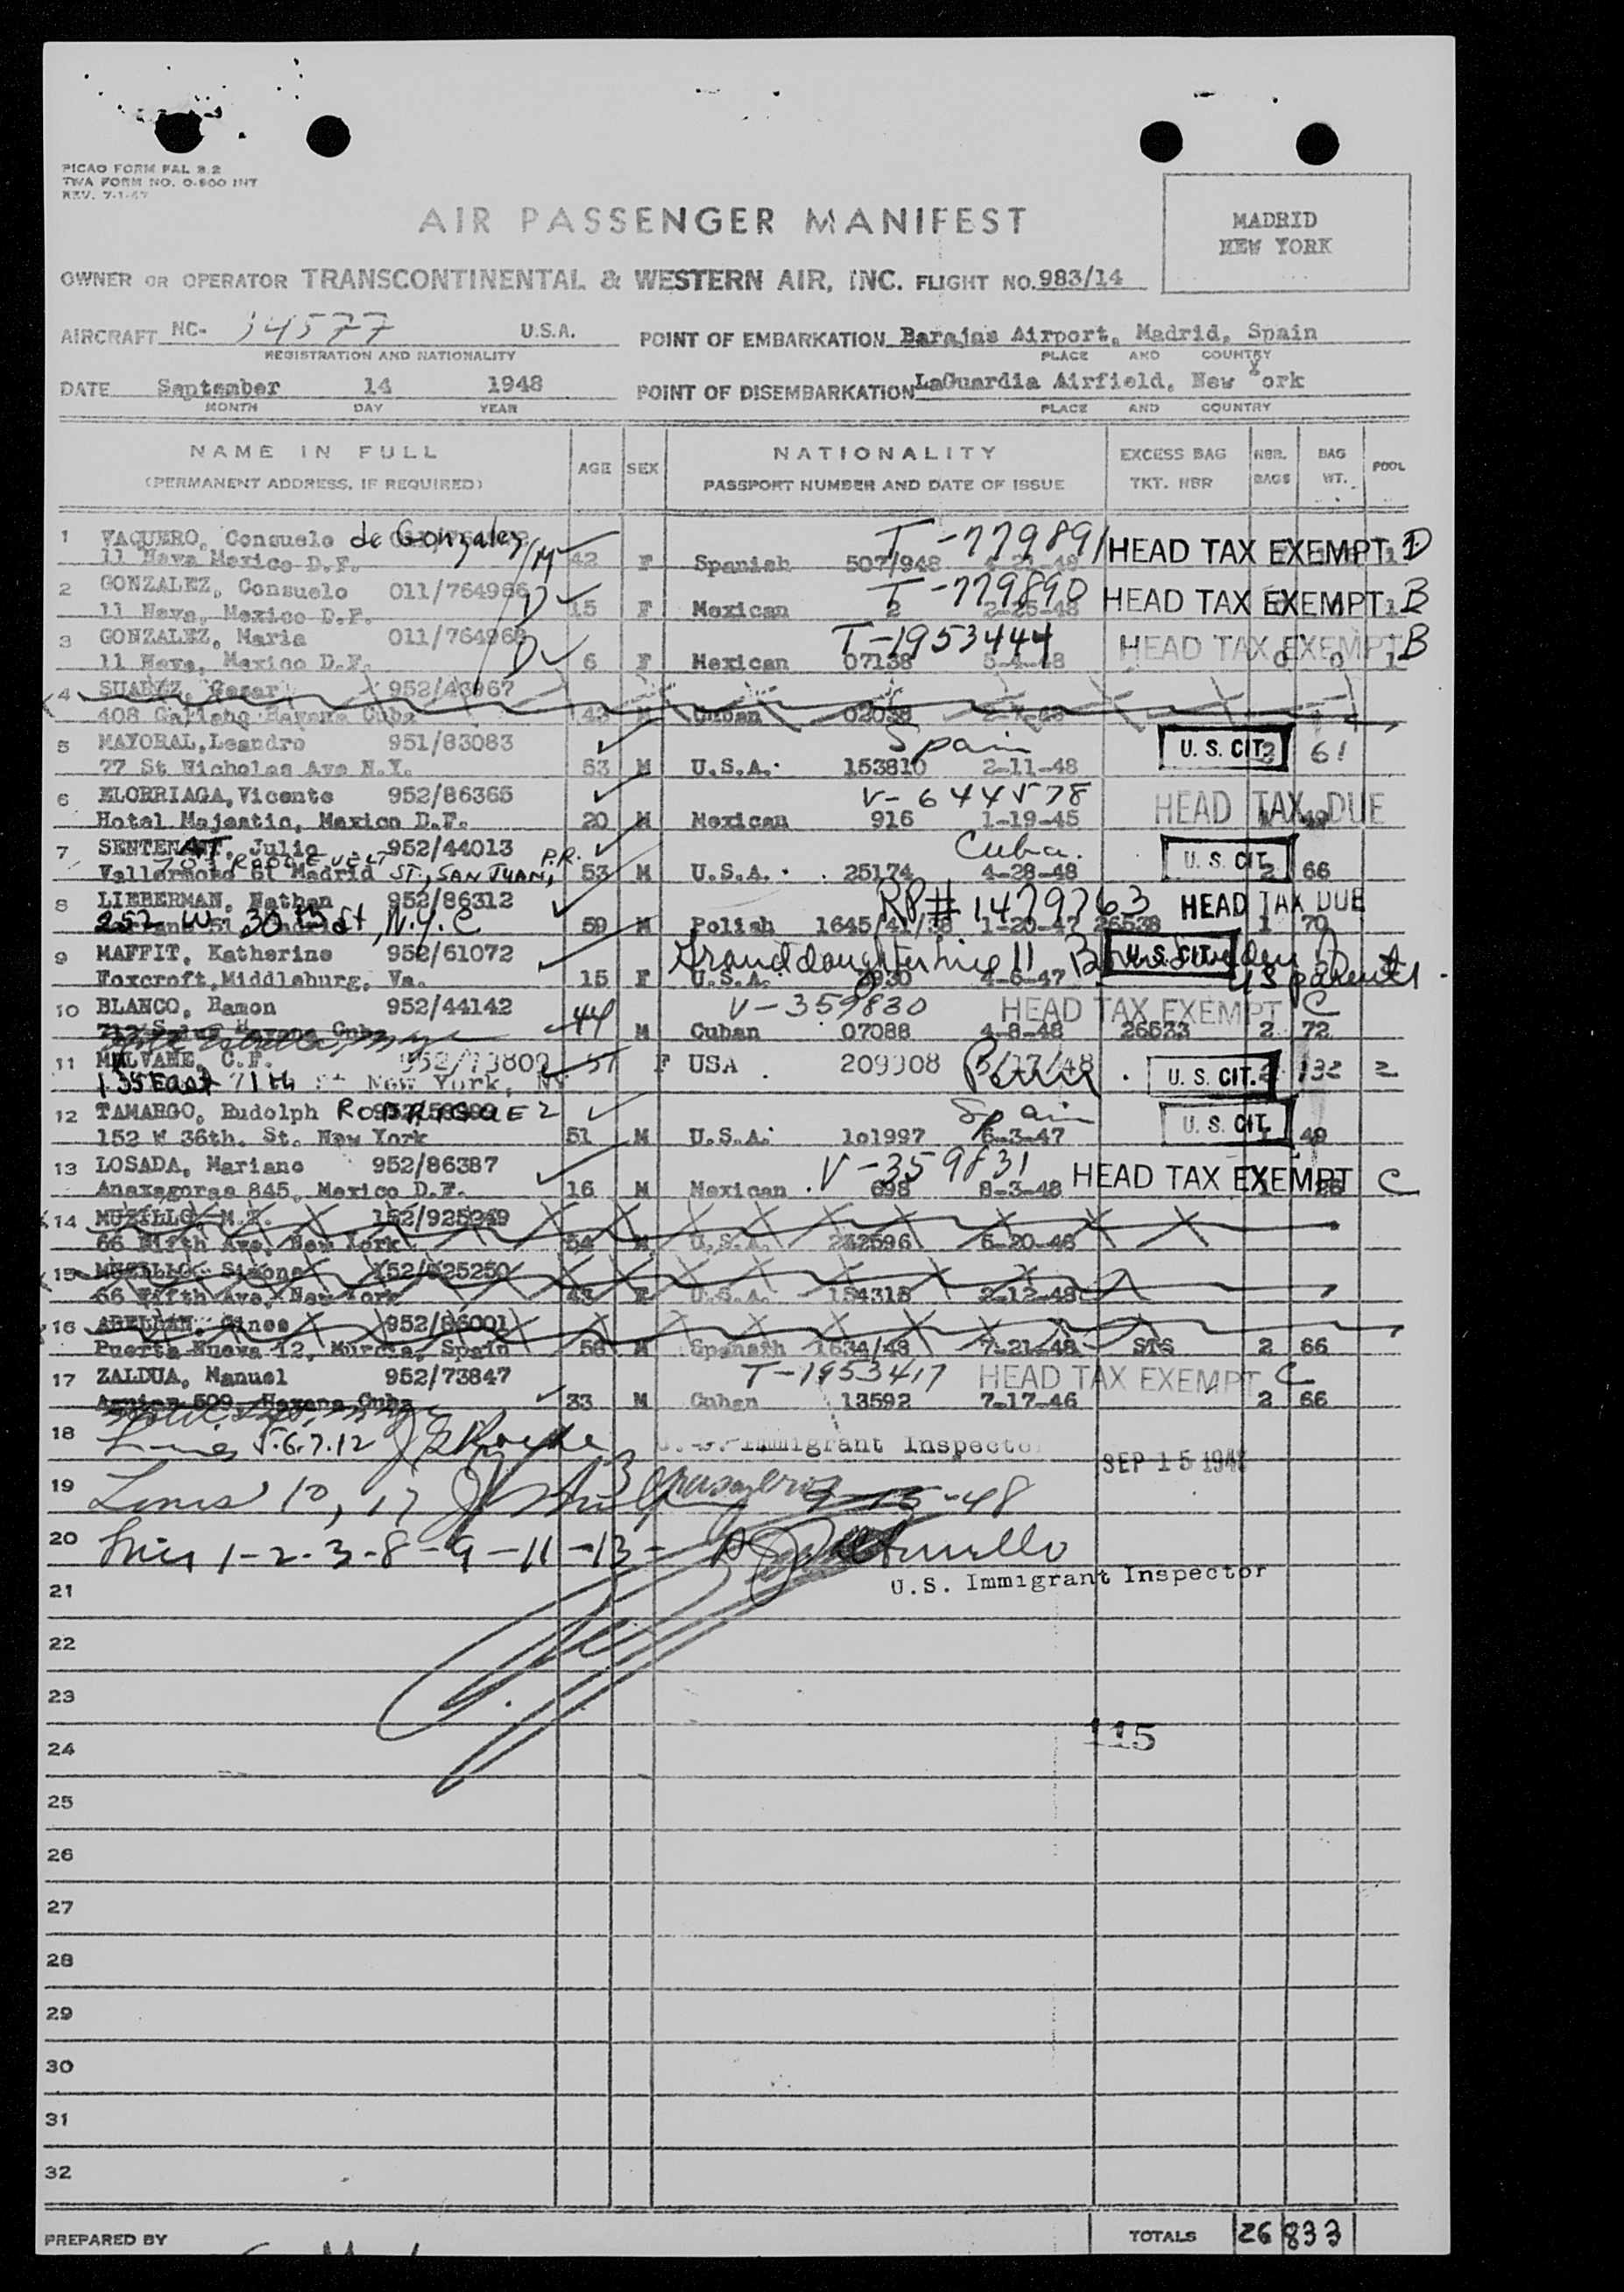 PICAO FORM FAL 8.2
TWA FORM NO. O-800 INT
REV. 7-1-47
AIR PASSENGER MANIFEST
MADRID
NEW YORK
OWNER OR OPERATOR TRANSCONTINENTAL & WESTERN AIR, INC. FLIGHT NO. 983/14
AIRCRAFT NC- 34577 U.S.A. POINT OF EMBARKATION Barajas Airport, Madrid, Spain
REGISTRATION AND NATIONALITY PLACE AND COUNTRY
DATE September 14 1948 POINT OF DISEMBARKATION LaGuardia Airfield, New York
MONTH DAY YEAR PLACE AND COUNTRY
NAME IN FULL AGE SEX NATIONALITY EXCESS BAG NBR. BAG POOL
(PERMANENT ADDRESS, IF REQUIRED) PASSPORT NUMBER AND DATE OF ISSUE TKT. NBR BAGS WT.
1 VAQUERO, Consuelo de Gonzalez M T-779891 HEAD TAX EXEMPT D
11 Hava Mexico D.F. 42 F Spanish 507/948 4-21-48
2 GONZALEZ, Consuelo 011/764966 D T-779890 HEAD TAX EXEMPT B
11 Hava, Mexico D.F. 15 F Mexican 2 2-25-48
3 GONZALEZ, Maria 011/764968 D T-1953444 HEAD TAX EXEMPT B
11 Hava, Mexico D.F. 6 F Mexican 07138 5-4-48 0 0 1
4 SUAREZ, Cesar 952/43967
408 Galiano Havana Cuba 43 M Cuban 02038
5 MAYORAL, Leandro 951/83083 Spain U.S. CIT. 2 61
77 St Nicholas Ave N.Y. 53 M U.S.A. 153810 2-11-48
6 ELORRIAGA, Vicente 952/86365 V-644578 HEAD TAX DUE
Hotel Majestic, Mexico D.F. 20 M Mexican 916 1-19-45
7 SENTENAT, Julio 952/44013 Cuba. U.S. CIT.
703 ROOSEVELT ST., SAN JUAN, P.R.
Vallermoso 61 Madrid 53 M U.S.A. 25174 4-28-48 2 66
8 LIEBERMAN, Nathan 952/86312 RP# 1479763 HEAD TAX DUE
252 W 30th St, N.Y.C 59 M Polish 1645/41/38 1-20-47 26538 1 70
9 MAFFIT, Katherine 952/61072 Granddaughter line 11 U.S. CIT. US parents
Foxcroft, Middleburg, Va. 15 F U.S.A. 4-6-47
10 BLANCO, Ramon 952/44142 44 V-359830 HEAD TAX EXEMPT C
712 Havana Cuba M Cuban 07088 4-8-48 26533 2 72
11 MULVANE, C.F. 952/73809 57 F USA 209908 8/17/48 U.S. CIT. 2 132 2
135 East 71th St New York, NY
12 TAMARGO, Rudolph RODRIGUEZ Spain U.S. CIT.
152 W 36th. St. New York 51 M U.S.A. 101997 6-3-47 49
13 LOSADA, Mariano 952/86387 V-359831 HEAD TAX EXEMPT C
Anaxagoras 845, Mexico D.F. 16 M Mexican 698 8-3-48
14 MUZILLO M.F. 152/925249
66 Fifth Ave, New York 54 M U.S.A. 232596 6-20-46
15 MUZILLO Simone 152/925250
66 Fifth Ave, New York 43 F U.S.A. 154315 2-12-48
16 ABELLAN, Gines 952/86001
Puerta Nueva 12, Murcia, Spain 56 M Spanish 1634/48 7-21-48 STS 2 66
17 ZALDUA, Manuel 952/73847 T-1953417 HEAD TAX EXEMPT C
509 Havana Cuba 33 M Cuban 13592 7-17-46 2 66
18 Lines 5.6.7.12 Immigrant Inspector SEP 15 1948
19 Lines 10, 17 9-15-48
20 Lines 1-2-3-8-9-11-13-
U.S. Immigrant Inspector
21
22
23
24 115
25
26
27
28
29
30
31
32
PREPARED BY TOTALS 26 833